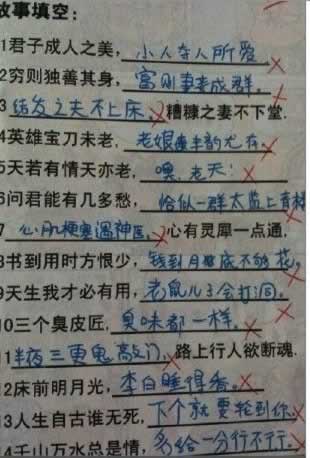 故事填空：
1君子成人之美，小人夺人所爱
2穷则独善其身，富则妻妾成群。
3结发之夫不上床，糟糠之妻不下堂.
4英雄宝刀未老，老娘风韵尤存。
5天若有情天亦老，嘿，老天！
6问君能有几多愁，恰似一群太监上青楼
7心肌梗塞遇神医，心有灵犀一点通.
8书到用时方恨少，钱到月底不够花。
9天生我才必有用，老鼠儿子会打洞。
10三个臭皮匠，臭味都一样。
11半夜三更鬼敲门，路上行人欲断魂.
12床前明月光，李白睡得香。
13人生自古谁无死，下个就要轮到你.
14千山万水总是情，多给一分行不行。